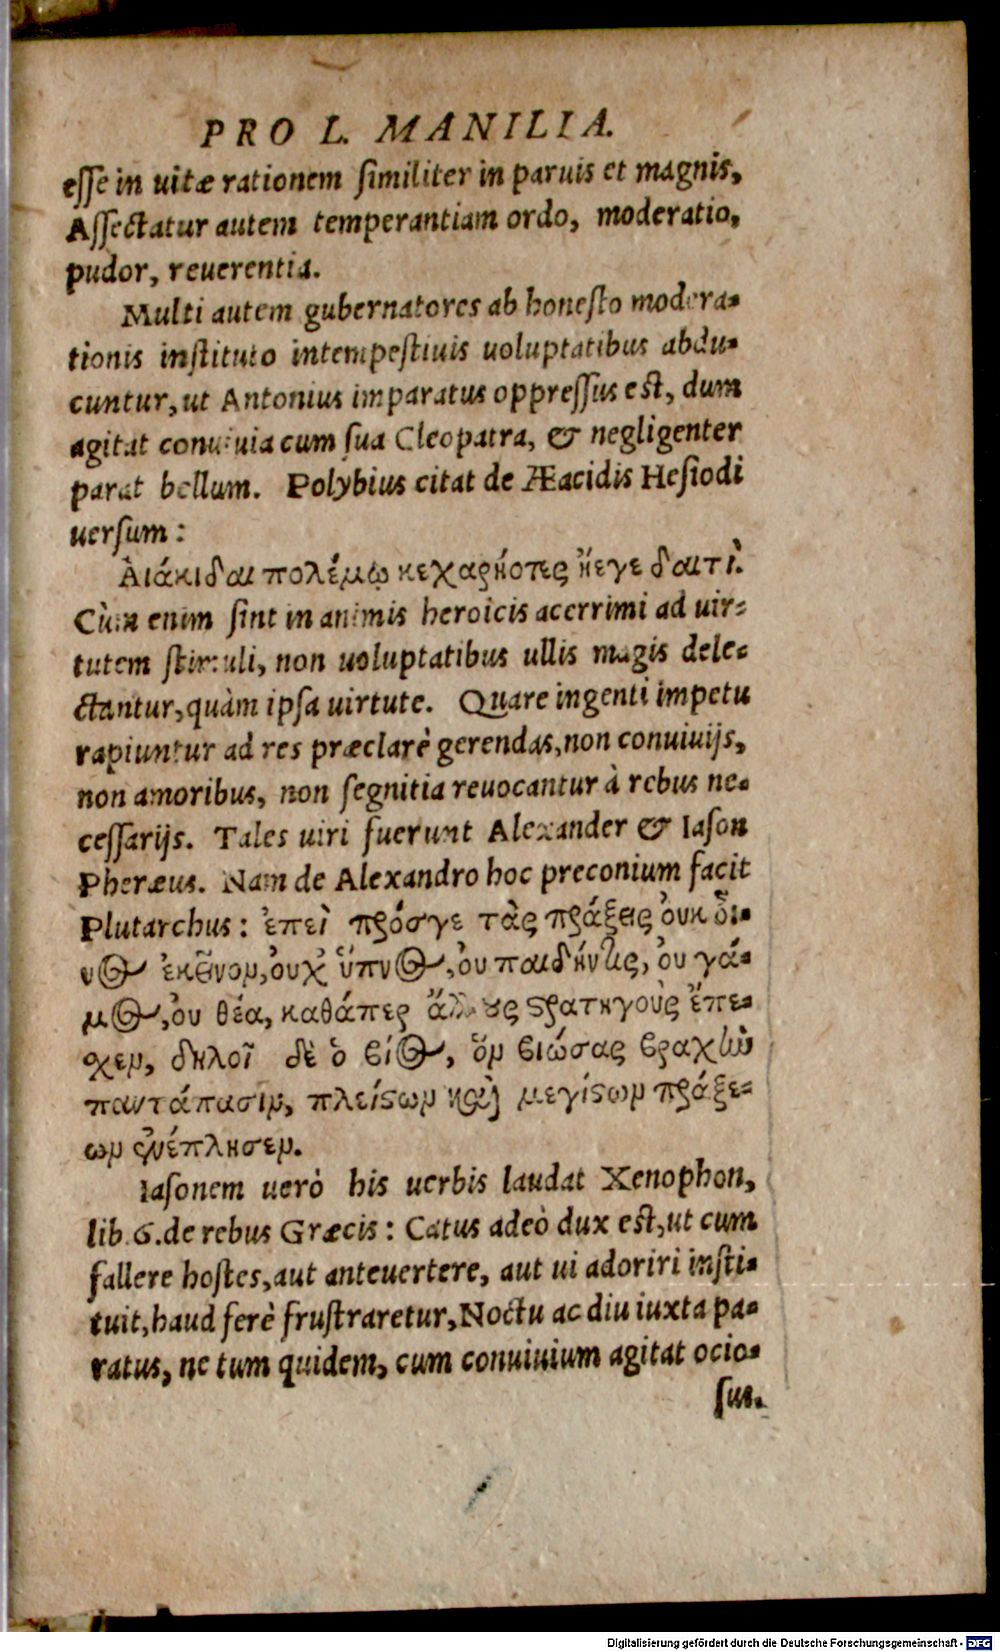 PRO L. MANILIA.
esse in uitæ rationem similiter in paruis et magnis,
Assectatur autem temperantiam ordo, moderatio,
pudor, reuerentia.
Multi autem gubernatores ab honesto modera-
tionis instituto intempestiuis uoluptatibus abdu-
cuntur, ut Antonius imparatus oppressus est, dum
agitat conuiuia cum sua Cleopatra, & negligenter
parat bellum. Polybius citat de Æacidis Hesiodi
uersum:
Ἀιάκιδαι πολέμῳ κεχαρηότες ἤυτε δαιτὶ.
Cùm enim sint in animis heroicis acerrimi ad uir-
tutem stimuli, non uoluptatibus ullis magis dele-
ctantur, quàm ipsa uirtute. Quare ingenti impetu
rapiuntur ad res præclarè gerendas, non conuiuijs,
non amoribus, non segnitia reuocantur à rebus ne-
cessarijs. Tales uiri fuerunt Alexander & Iason
Pheræus. Nam de Alexandro hoc preconium facit
Plutarchus: ἐπεὶ πρόσγε τὰς πράξεις ὀυκ ὄι-
νος ἐκεῖνον, ὀυχ ὕπνος, ὀυ παιδήντις, ὀυ γά-
μος, ὀυ θέα, καθάπερ ἄλλους στρατηγοὺς ἔπε-
χεν, δηλοῖ δὲ ὁ βίος, ὃν βιώσας βραχὺν
παντάπασιν, πλείστων καὶ μεγίστων πράξε-
ων ἐνέπλησεν.
Iasonem uerò his uerbis laudat Xenophon,
lib. 6. de rebus Græcis: Catus adeò dux est, ut cum
fallere hostes, aut anteuertere, aut ui adoriri insti-
tuit, haud ferè frustraretur, Noctu ac diu iuxta pa-
ratus, ne tum quidem, cum conuiuium agitat ocio-
sus.
Digitalisierung gefördert durch die Deutsche Forschungsgemeinschaft - DFG